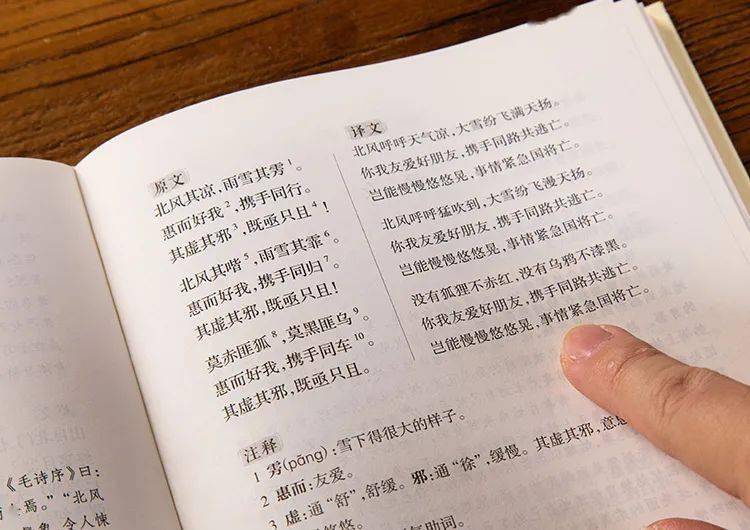 原文
北风其凉,雨雪其雱1。
惠而好我2,携手同行。
其虚其邪3,既亟只且4!
北风其喈5,雨雪其霏6。
惠而好我,携手同归7。
其虚其邪,既亟只且!
莫赤匪狐8,莫黑匪乌9。
惠而好我,携手同车10。
其虚其邪,既亟只且。
译文
北风呼呼天气凉,大雪纷飞满天扬。
你我友爱好朋友,携手同路共逃亡。
岂能慢慢悠悠晃,事情紧急国将亡。
北风呼呼猛吹到,大雪纷飞漫天扬。
你我友爱好朋友,携手同路共逃亡。
岂能慢慢悠悠晃,事情紧急国将亡。
没有狐狸不赤红,没有乌鸦不漆黑。
你我友爱好朋友,携手同路共逃亡。
岂能慢慢悠悠晃,事情紧急国将亡。
注释
1 雱(pāng):雪下得很大的样子。
2 惠而:友爱。
3 虚:通“舒”,舒缓。邪:通“徐”,缓慢。其虚其邪,意思
悠悠。
气助词。
《毛诗序》曰:
焉。”“北风
象,令人悚